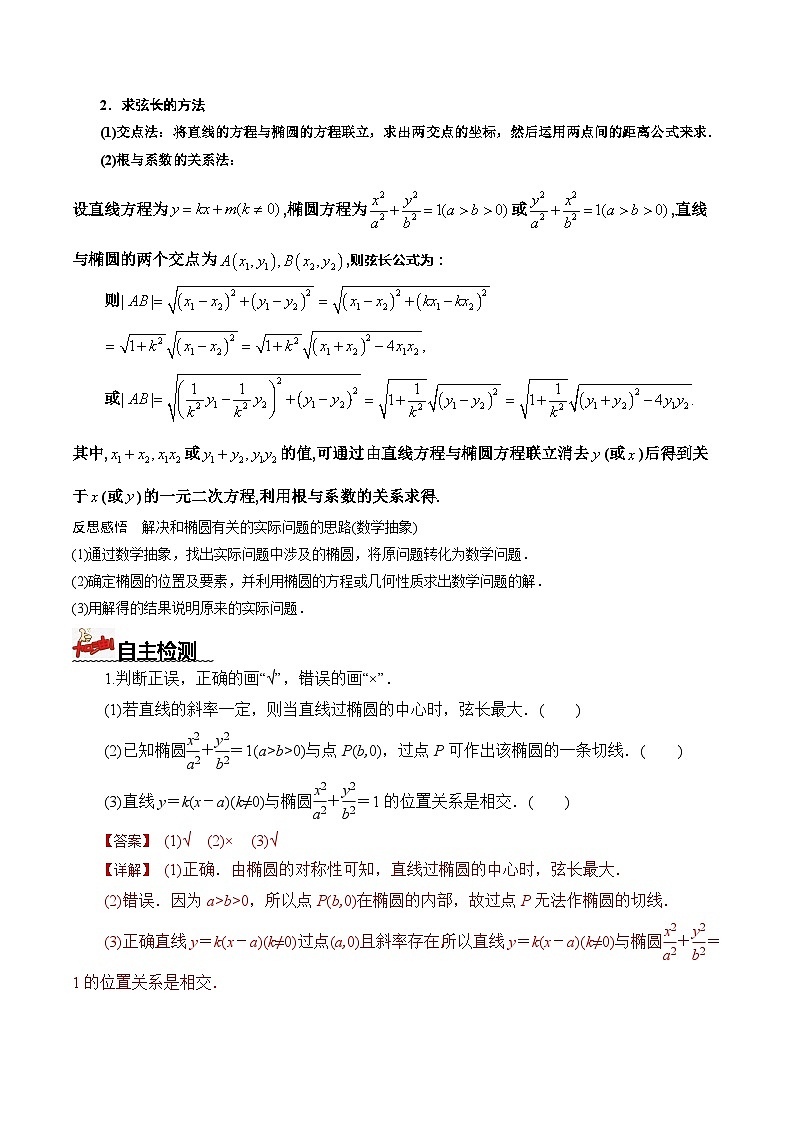 2．求弦长的方法
(1)交点法：将直线的方程与椭圆的方程联立，求出两交点的坐标，然后运用两点间的距离公式来求．
(2)根与系数的关系法：
设直线方程为 y = kx + m(k ≠ 0) ,椭圆方程为 x²/a² + y²/b² = 1(a > b > 0) 或 y²/a² + x²/b² = 1(a > b > 0) ,直线
与椭圆的两个交点为 A(x₁, y₁), B(x₂, y₂) ,则弦长公式为：
则| AB |= √((x₁ − x₂)² + (y₁ − y₂)²) = √((x₁ − x₂)² + (kx₁ − kx₂)²)
= √(1 + k²) √((x₁ − x₂)²) = √(1 + k²) √((x₁ + x₂)² − 4x₁x₂) ,
或| AB |= √((1/k² y₁ − 1/k² y₂)² + (y₁ − y₂)²) = √(1 + 1/k²) √((y₁ − y₂)²) = √(1 + 1/k²) √((y₁ + y₂)² − 4y₁y₂) .
其中, x₁ + x₂, x₁x₂ 或 y₁ + y₂, y₁y₂ 的值,可通过由直线方程与椭圆方程联立消去 y (或 x )后得到关
于 x (或 y )的一元二次方程,利用根与系数的关系求得.
反思感悟　解决和椭圆有关的实际问题的思路(数学抽象)
(1)通过数学抽象，找出实际问题中涉及的椭圆，将原问题转化为数学问题．
(2)确定椭圆的位置及要素，并利用椭圆的方程或几何性质求出数学问题的解．
(3)用解得的结果说明原来的实际问题．
自主检测
1.判断正误，正确的画“√”，错误的画“×”．
(1)若直线的斜率一定，则当直线过椭圆的中心时，弦长最大．(　　)
(2)已知椭圆x²/a²＋y²/b²＝1(a>b>0)与点 P(b,0)，过点 P 可作出该椭圆的一条切线．(　　)
(3)直线 y＝k(x－a)(k≠0)与椭圆x²/a²＋y²/b²＝1 的位置关系是相交．(　　)
【答案】 (1)√ (2)× (3)√
【详解】 (1)正确．由椭圆的对称性可知，直线过椭圆的中心时，弦长最大．
(2)错误．因为 a>b>0，所以点 P(b,0)在椭圆的内部，故过点 P 无法作椭圆的切线．
(3)正确直线 y＝k(x－a)(k≠0)过点(a,0)且斜率存在所以直线 y＝k(x－a)(k≠0)与椭圆x²/a²＋y²/b²＝
1 的位置关系是相交．